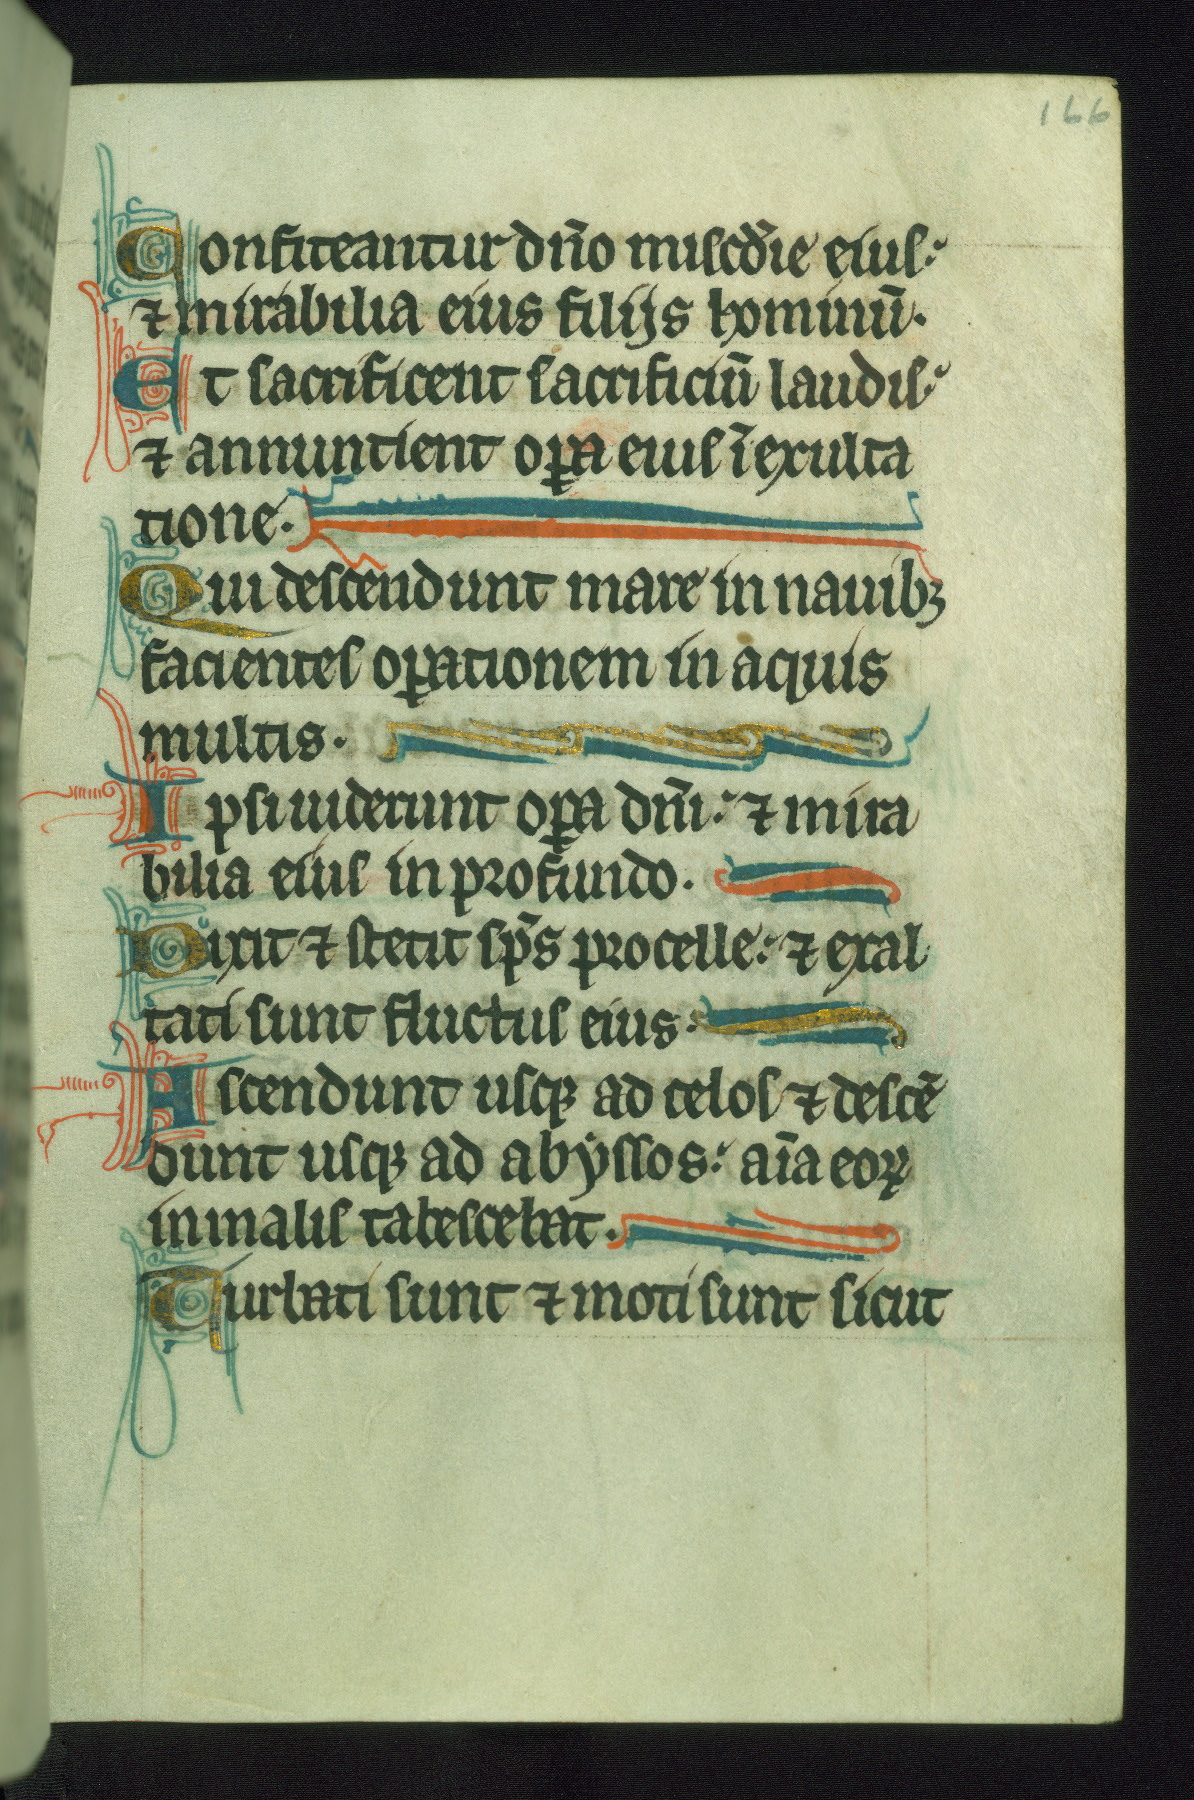 166
Confiteantur dn̄o miſcd̄ie eiuſ:
⁊ mirabilia eius filijs hominū.
Et ſacrificent ſacrificiū laudiſ:
⁊ annuntient oꝑa eiuſ ī exulta
tione.
Qui deſcendunt mare in nauibꝫ
facienteſ oꝑationem in aquis
multis.
Ipſi uiderunt oꝑa dn̄i: ⁊ mira
bilia eiuſ in profundo.
Dixit ⁊ ſtetit ſp̄s procelle: ⁊ exal
tati ſunt fluctuſ eius:
Aſcendunt uſqꝫ ad celoſ ⁊ deſcē
dunt uſqꝫ ad abyſſos: aīa eoꝝ
in maliſ tabeſcebat.
Turbati ſunt ⁊ moti ſunt ſicut